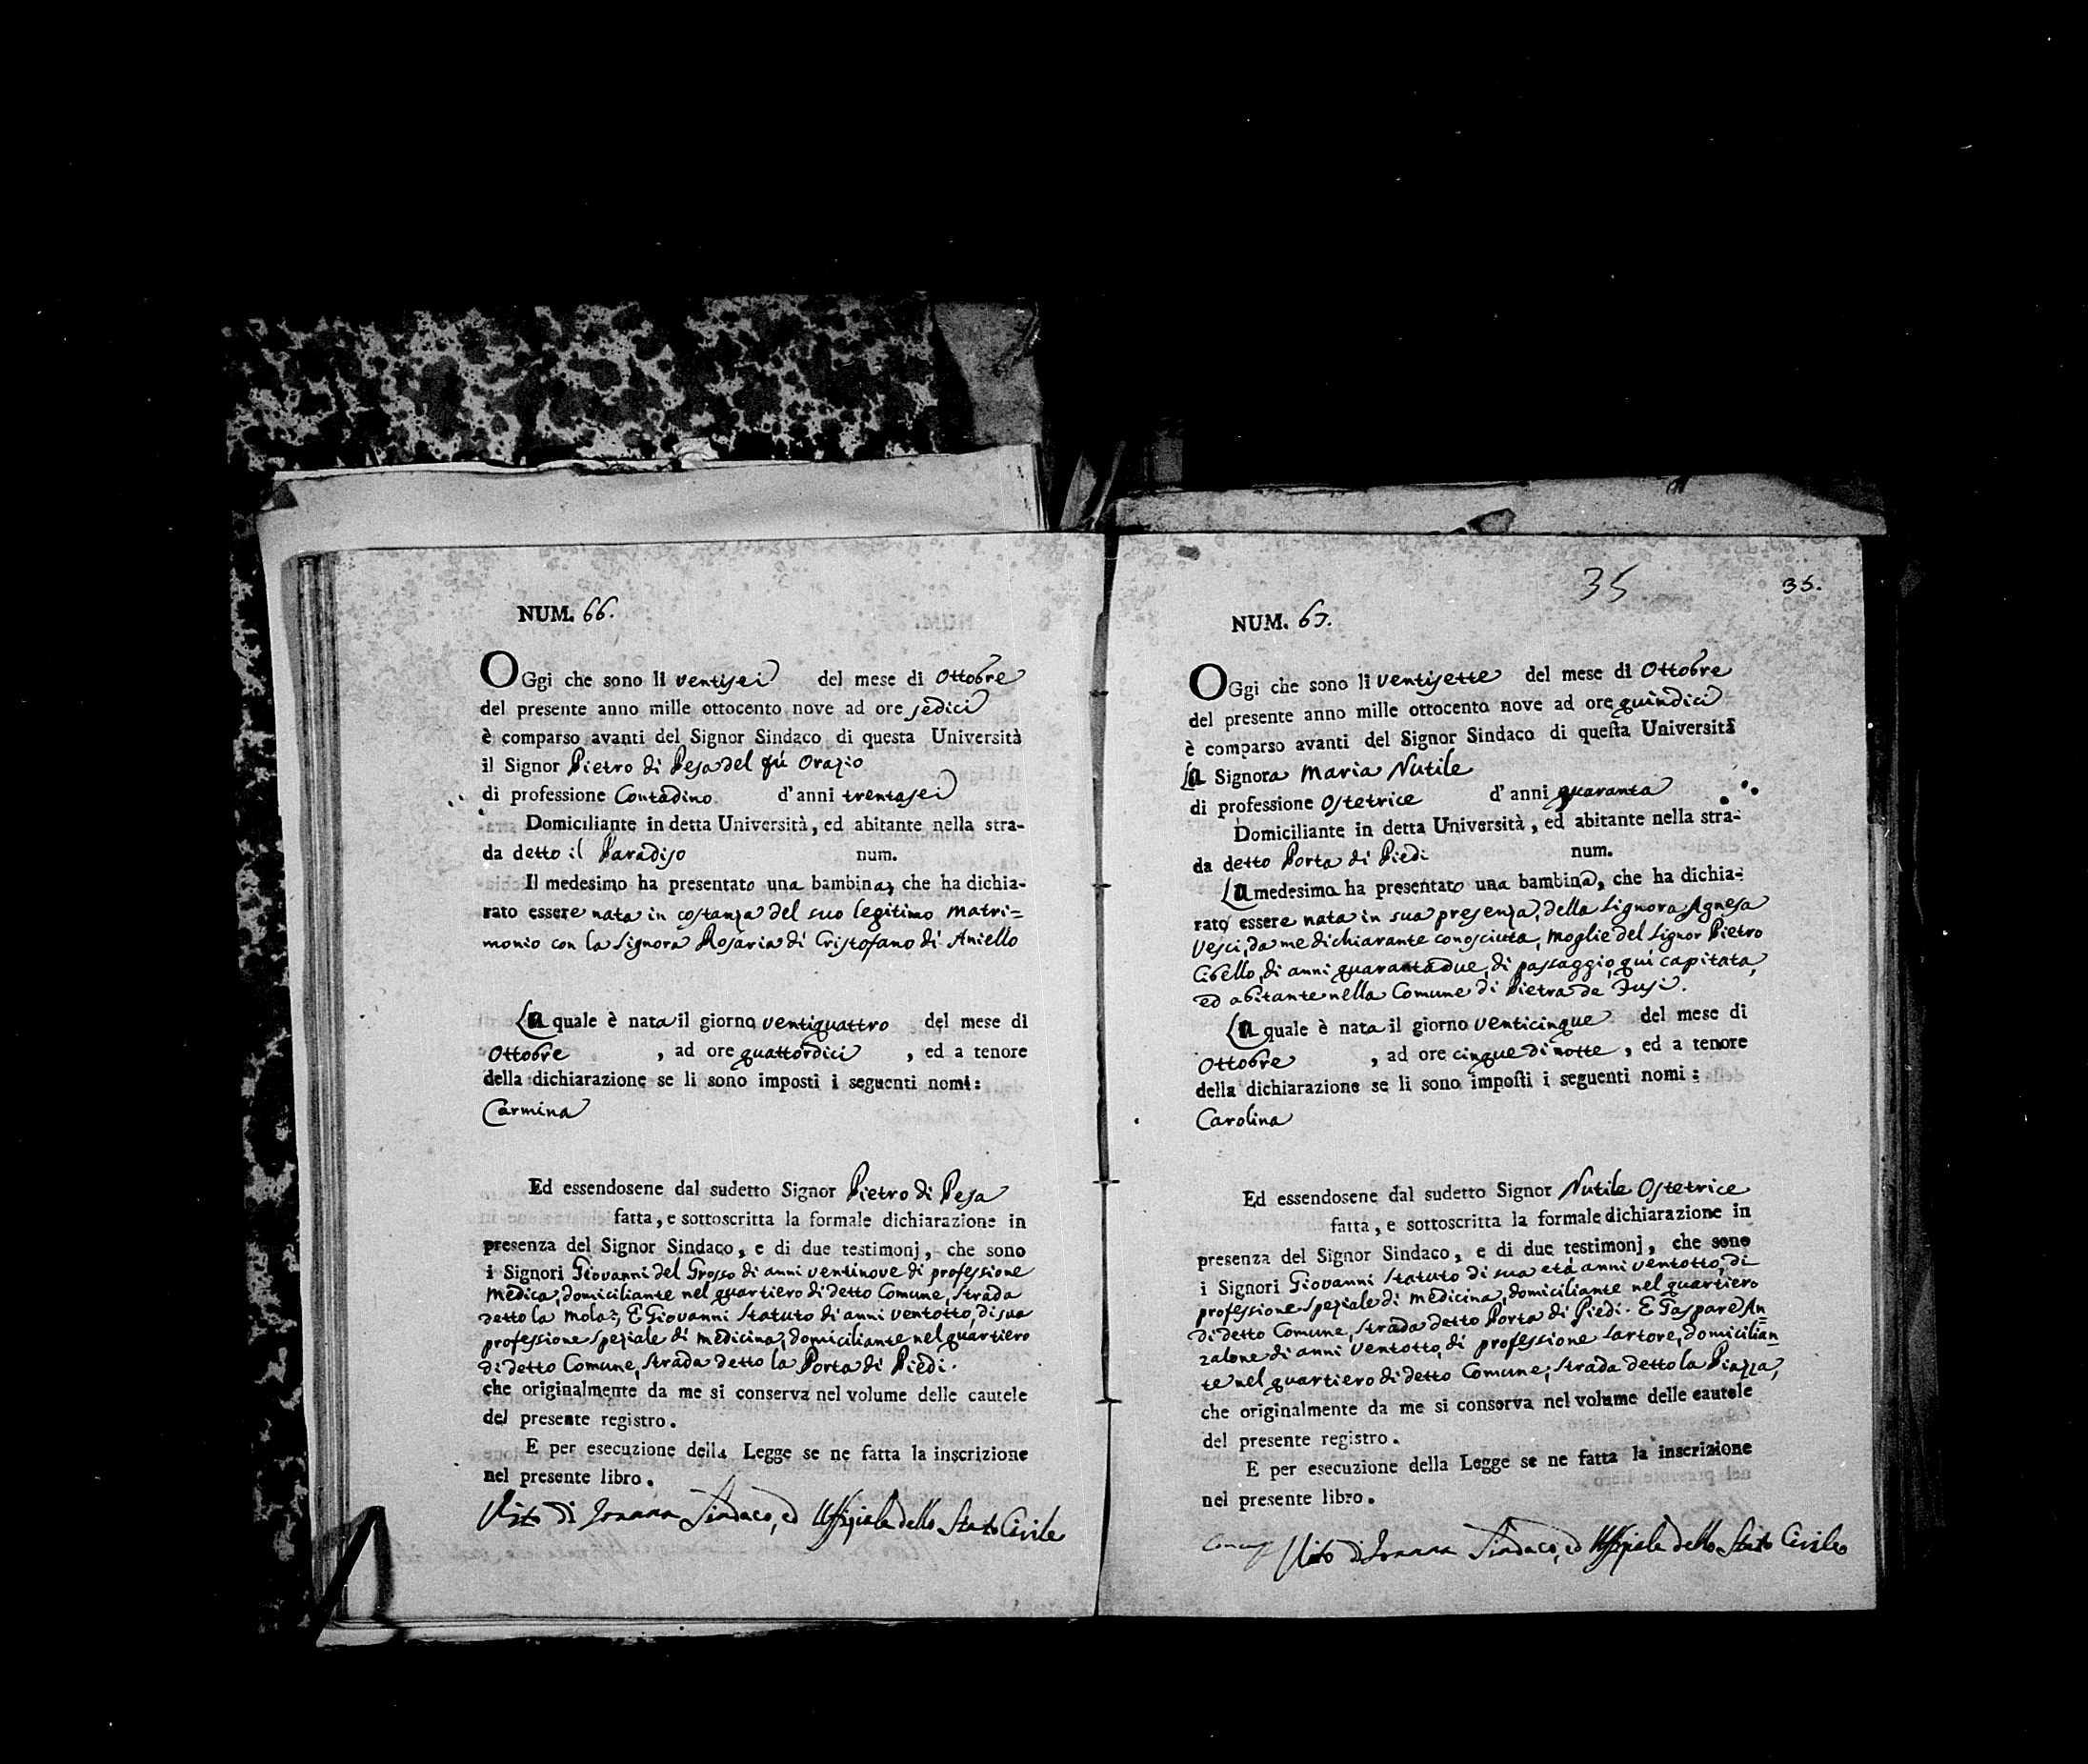 NUM. 66.
OGgi che sono li ventisei del mese di Ottobre
del presente anno mille ottocento nove ad ore sedici
è comparso avanti del Signor Sindaco di questa Università
il Signor Pietro di Pesa del fù Orazio
di professione Contadino d'anni trentasei
Domiciliante in detta Università, ed abitante nella stra-
da detto il Paradiso num.
Il medesimo ha presentato una bambina, che ha dichia-
rato essere nata in costanza del suo legitimo Matri=
monio con la Signora Rosaria di Cristofano di Aniello
La quale è nata il giorno ventiquattro del mese di
Ottobre , ad ore quattordici , ed a tenore
della dichiarazione se li sono imposti i seguenti nomi:
Carmina
Ed essendosene dal sudetto Signor Pietro di Pesa
fatta, e sottoscritta la formale dichiarazione in
presenza del Signor Sindaco, e di due testimonj, che sono
i Signori Giovanni del Grosso di anni ventinove di professione
Medica, domiciliante nel quartiero di detto Comune, strada
detto la Mola, E Giovanni Statuto di anni ventotto, di sua
professione speziale di medicina, domiciliante nel quartiero
di detto Comune, strada detto la Porta di Piedi.
che originalmente da me si conserva nel volume delle cautele
del presente registro.
E per esecuzione della Legge se ne fatta la inscrizione
nel presente libro.
Vito di Ioanna Sindaco, ed Uffiziale dello Stato Civile
35 35.
NUM. 67.
OGgi che sono li ventisette del mese di Ottobre
del presente anno mille ottocento nove ad ore quindici
è comparso avanti del Signor Sindaco di questa Università
La Signora Maria Nutile
di professione Ostetrice d'anni quaranta
Domiciliante in detta Università, ed abitante nella stra-
da detto Porta di Piedi num.
La medesima ha presentato una bambina, che ha dichia-
rato essere nata in sua presenza, della Signora Agnesa
Vesci, da me dichiarante conosciuta, moglie del Signor Pietro
Cibello, di anni quarantadue, di passaggio qui capitata,
ed abitante nella Comune di Pietra de Fusi.
La quale è nata il giorno venticinque del mese di
Ottobre , ad ore cinque di notte , ed a tenore
della dichiarazione se li sono imposti i seguenti nomi:
Carolina
Ed essendosene dal sudetto Signor Nutile Ostetrice
fatta, e sottoscritta la formale dichiarazione in
presenza del Signor Sindaco, e di due testimonj, che sono
i Signori Giovanni Statuto di sua età anni ventotto, di
professione speziale di medicina, domiciliante nel quartiero
di detto Comune, strada detto Porta di Piedi. E Gaspare An=
zalone di anni ventotto, di professione sartore, domicilian=
te nel quartiero di detto Comune, strada detto la Piazza,
che originalmente da me si conserva nel volume delle cautele
del presente registro.
E per esecuzione della Legge se ne fatta la inscrizione
nel presente libro.
Vito di Ioanna Sindaco, ed Uffiziale dello Stato Civile